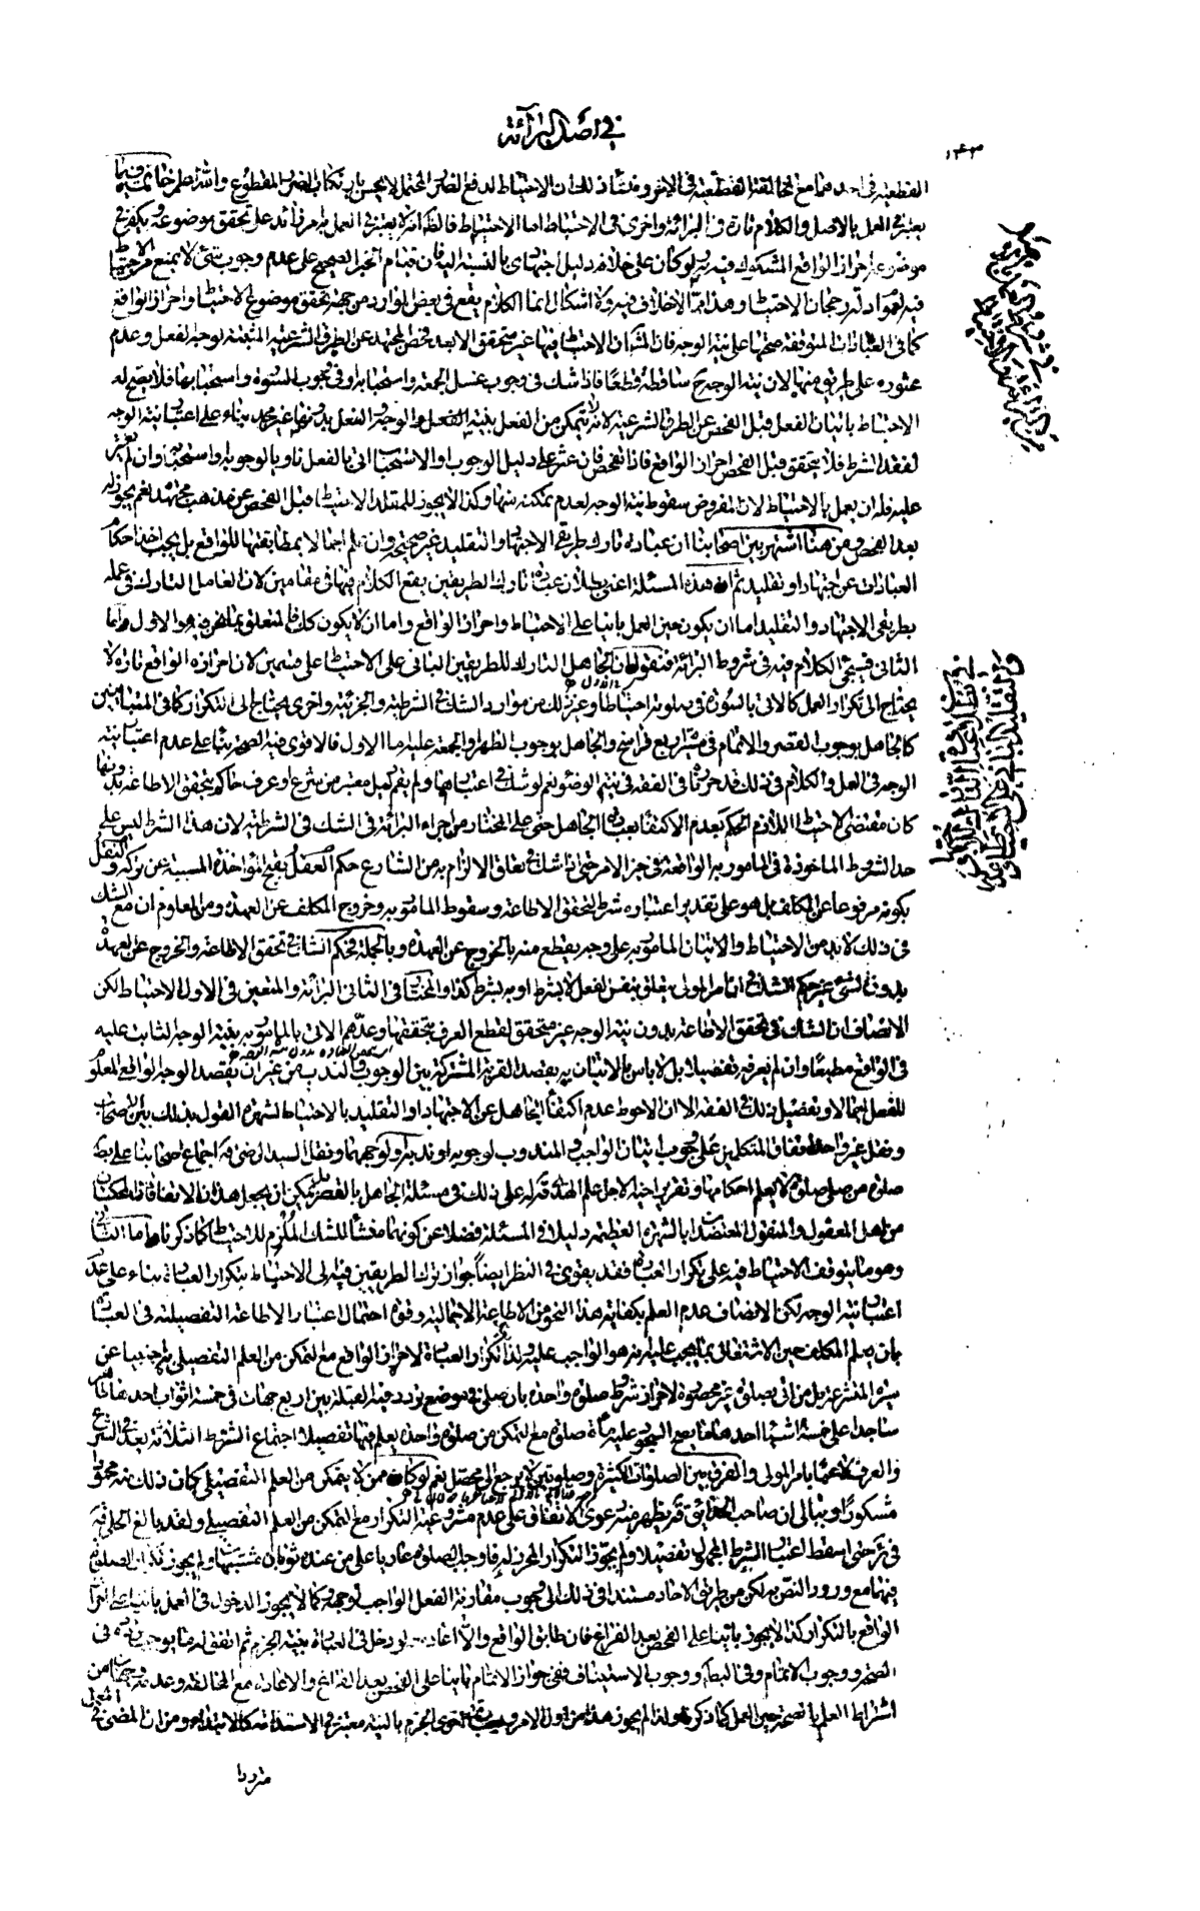 في اصل البرائة
القطعية في احدهما مع المخالفة القطعية في الاخر ومنشأ ذلك ان الاحتياط لدفع الضرر المحتمل لا يحسن بارتكاب الضرر المقطوع والله اعلم خاتمة فيما
يعتبر في العمل بالاصل والكلام تارة في البرائة واخرى في الاحتياط اما الاحتياط فالظاهر انه لا يعتبر في العمل به امر زائد على تحقق موضوعه ويكفي في
موضوعه احراز الواقع المشكوك فيه به ولو كان على خلافه دليل اجتهادي بالنسبة اليه فان قيام الخبر الصحيح على عدم وجوب شئ لا يمنع من الاحتياط
فيه لعموم ادلة رجحان الاحتياط وهذا مما لا خلاف فيه ولا اشكال انما الكلام يقع في بعض الموارد من جهة تحقق موضوع الاحتياط واحراز الواقع
كما في العبادات المتوقفة صحتها على نية الوجه فان المشهور ان الاحتياط فيها غير متحقق الا بعد فحص المجتهد عن الطرق الشرعية المثبتة لوجه الفعل وعدم
عثوره على طريق منها لان نية الوجه ح ساقطة قطعا فاذا شك في وجوب غسل الجمعة واستحبابه او في وجوب السورة واستحبابها فلا يصح له
الاحتياط باتيان الفعل قبل الفحص عن الطرق الشرعية لانه لا يتمكن من الفعل بنية الوجه والفعل بدونها غير مجد بناء على اعتبار نية الوجه
لفقد الشرط فلا يتحقق قبل الفحص احراز الواقع فاذا تفحص فان عثر على دليل الوجوب او الاستحباب اتى بالفعل ناويا لوجوبه او استحبابه وان لم يعثر
عليه فله ان يعمل بالاحتياط لان المفروض سقوط نية الوجه لعدم تمكنه منها وكذا لا يجوز للمقلد الاحتياط قبل الفحص عن مذهب مجتهده نعم يجوز له
بعد الفحص ومن هنا اشتهر بين اصحابنا ان عبادة تارك طريقي الاجتهاد والتقليد غير صحيحة وان علم اجمالا بمطابقتها للواقع بل يجب اخذ احكام
العبادات عن اجتهاد او تقليد ثم ان هذه المسئلة اعني بطلان عبادة تارك الطريقين يقع الكلام فيها في مقامين لان العامل التارك في عمله
بطريقي الاجتهاد والتقليد اما ان يكون حين العمل بانيا على الاحتياط واحراز الواقع واما ان لا يكون كذلك فالمتعلق بما نحن فيه هو الاول واما
الثاني فسيجئ الكلام فيه في شروط البرائة فنقول ان الجاهل التارك للطريقين الباني على الاحتياط على قسمين لان احرازه للواقع تارة لا
يحتاج الى تكرار العمل كالاتي بالسورة في صلوته احتياطا وغير ذلك من موارد الشك في الشرطية والجزئية واخرى يحتاج الى التكرار كما في المتباينين
كالجاهل بوجوب القصر والاتمام في مسيرة اربع فراسخ والجاهل بوجوب الظهر او الجمعة عليه اما الاول فالاقوى فيه الصحة بناء على عدم اعتبار نية
الوجه في العمل والكلام في ذلك قد حررناه في الفقه في نية الوضوء نعم لو شك في اعتبارها ولم يقم دليل معتبر من شرع او عرف حاكم بتحقق الاطاعة بدونها
كان مقتضى الاحتياط اللازم الحكم بعدم الاكتفاء بعبادة الجاهل حتى على المختار من اجراء البرائة في الشك في الشرطية لان هذا الشرط ليس على
حد الشروط الماخوذة في المامور به الواقعة في حيز الامر حتى اذا شك في تعلق الالزام به من الشارع حكم العقل بقبح المؤاخذة المسببة عن تركه والنقل
بكونه مرفوعا عن المكلف بل هو على تقدير اعتباره شرط لتحقق الاطاعة وسقوط المامور به وخروج المكلف عن العهدة ومن المعلوم ان مع الشك
في ذلك لا بد من الاحتياط والاتيان بالمامور به على وجه يقطع معه بالخروج عن العهدة وبالجملة فحكم الشك في تحقق الاطاعة والخروج عن العهدة
بدون الشئ غير حكم الشك في ان امر المولى متعلق بنفس الفعل لا بشرط او به بشرط كذا والمختار في الثاني البرائة والمتعين في الاول الاحتياط لكن
الانصاف ان الشك في تحقق الاطاعة بدون نية الوجه غير متحقق لقطع العرف بتحققها وعدهم الاتي بالمامور به بنية الوجه الثابت عليه
في الواقع مطيعا وان لم يعرفه تفصيلا بل لا باس بالاتيان به بقصد القربة المشتركة بين الوجوب والندب من غير ان يقصد الوجه الواقعي المعلوم
للفعل اجمالا وتفصيل ذلك في الفقه الا ان الاحوط عدم اكتفاء الجاهل عن الاجتهاد او التقليد بالاحتياط لشهرة القول بذلك بين الاصحاب
ونقل غير واحد اتفاق المتكلمين على وجوب اتيان الواجب والمندوب لوجوبه او ندبه او لوجههما ونقل السيد الرضي قده اجماع اصحابنا على بطلان
صلوة من صلى صلوة لا يعلم احكامها وتقرير اخيه الاجل علم الهدى قده له على ذلك في مسئلة الجاهل بالقصر بل يمكن ان يجعل هذان الاتفاقان المحكيان
من اهل المعقول والمنقول المعتضدان بالشهرة العظيمة دليلا في المسئلة فضلا عن كونهما منشأ للشك الملزم للاحتياط كما ذكرنا واما الثاني
وهو ما يتوقف الاحتياط فيه على تكرار العبادة فقد يقوى في النظر ايضا جواز ترك الطريقين فيه الى الاحتياط بتكرار العبادة بناء على عدم
اعتبار نية الوجه لكن الانصاف عدم العلم بكفاية هذا النحو من الاطاعة الاجمالية وقوة احتمال اعتبار الاطاعة التفصيلية في العبادة
بان يعلم المكلف حين الاشتغال بما يجب عليه انه هو الواجب عليه ولذا يعد تكرار العبادة لاحراز الواقع مع التمكن من العلم التفصيلي به اجنبيا عن
سيرة المتشرعة بل من اتى بصلوة غير محصورة لاحراز شروط صلوة واحدة بان صلى في موضع تردد فيه القبلة بين اربع جهات في خمسة اثواب احدها طاهر
ساجدا على خمسة اشياء احدها ما يصح السجود عليه مأة صلوة مع التمكن من صلوة واحدة يعلم فيها تفصيلا اجتماع الشروط الثلاثة يعد في الشرع
والعرف لاعبا بامر المولى والفرق بين الصلوات الكثيرة وصلوتين لا يرجع الى محصل نعم لو كان ممن لا يتمكن من العلم التفصيلي كان ذلك منه محمودا
مشكورا وببالي ان صاحب الحدائق قده يظهر منه دعوى الاتفاق على عدم مشروعية التكرار مع التمكن من العلم التفصيلي ولقد بالغ الحلي قده
في ئر حتى اسقط اعتبار الشرط المجهول تفصيلا ولم يجوز التكرار المحرز له فاوجب الصلوة عاريا على من عنده ثوبان مشتبهان ولم يجوز تكرار الصلوة
فيهما مع ورود النص به لكن من طريق الاحاد مستندا في ذلك الى وجوب مقارنة الفعل الواجب لوجهه وكما لا يجوز الدخول في العمل بانيا على احراز
الواقع بالتكرار كذا لا يجوز بانيا على الفحص بعد الفراغ فان طابق الواقع والا اعاد ولو دخل في العبادة بنية الجزم ثم اتفق له ما يوجب تردده في
الصحة ووجوب الاتمام وفي البطلان ووجوب الاستيناف ففي جواز الاتمام بانيا على الفحص بعد الفراغ والاعادة مع المخالفة وعدمه وجهان من
اشتراط العلم بالصحة حين العمل كما ذكرنا ولذا لم يجوز هذا من اول الامر وبعبارة اخرى الجزم بالنية معتبر في الاستدامة كالابتداء ومن ان المضي في العمل
مترددا